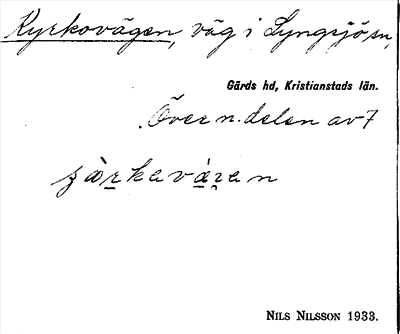 Kyrkovägen, väg i Lyngsjö sn,
Gärds hd, Kristianstads län.
Över n. delen av 7
NILS NILSSON 1933.